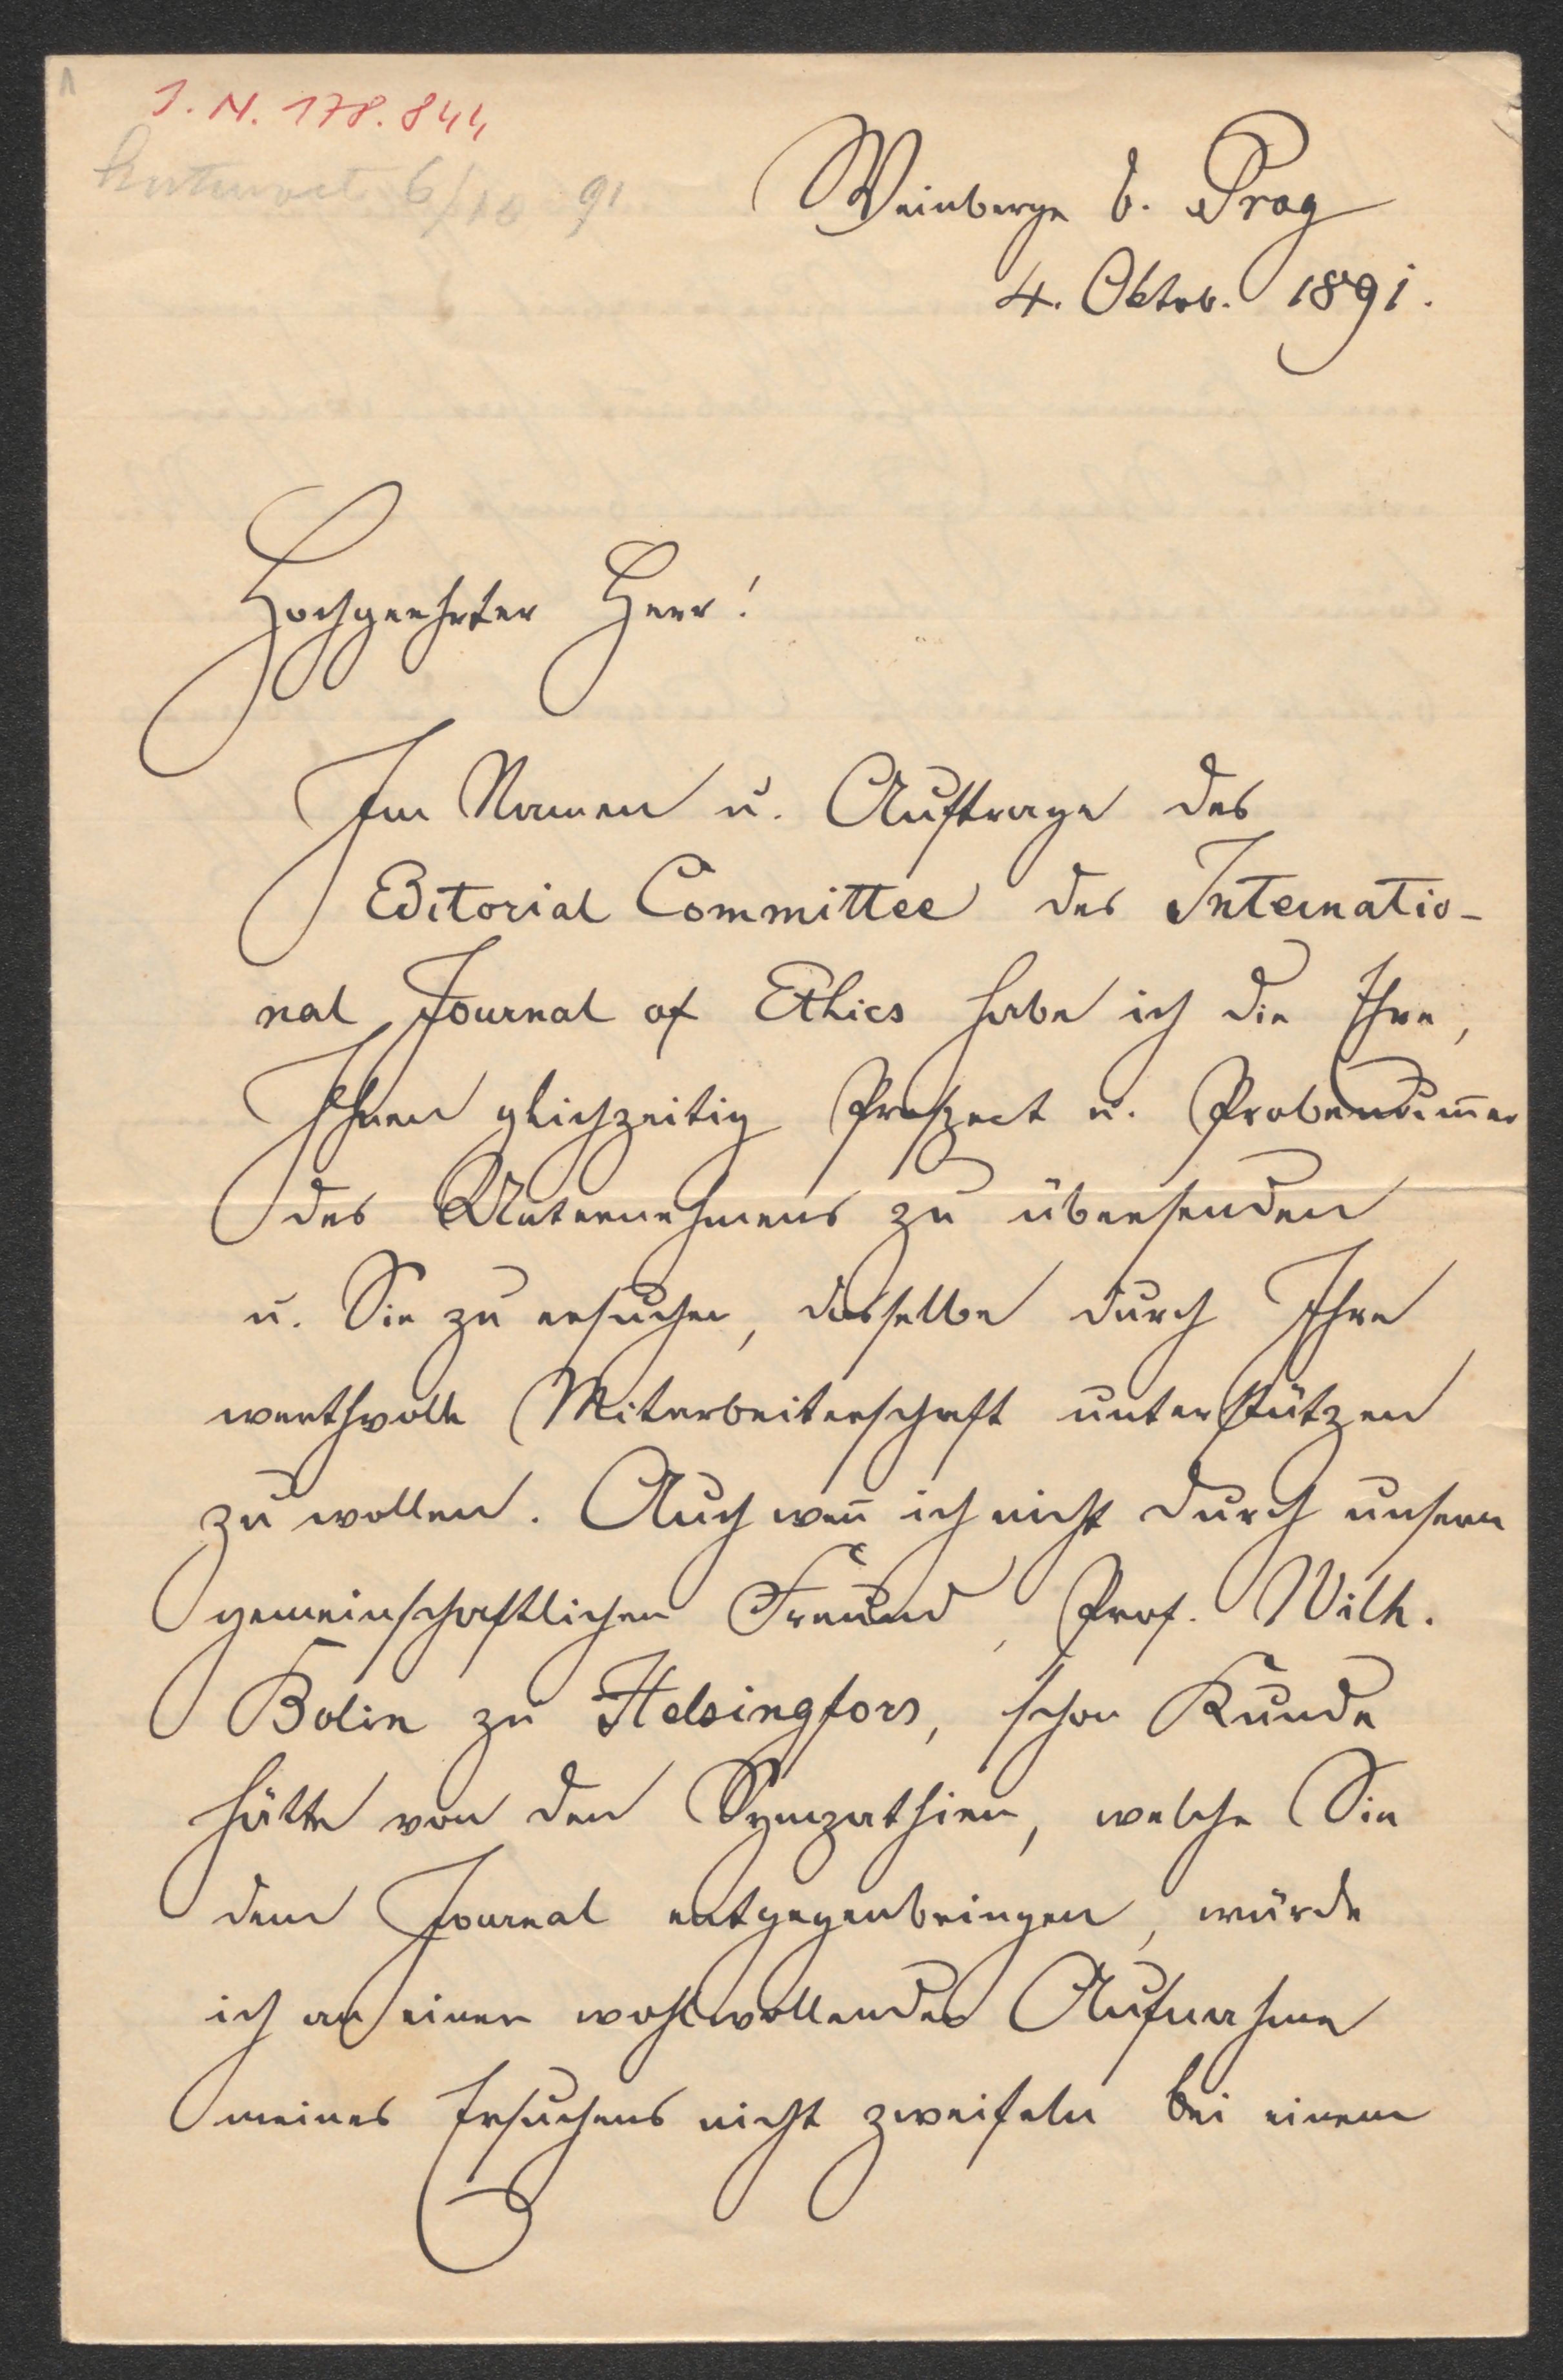 1
I. N. 178.844
Antwort 6/10 91
Weinberge b. Prag
4. Oktob. 1891.
Hochgeehrter Herr!
Im Namen u. Auftrage des
Editorial Committee des Internatio-
nal Journal of Ethics habe ich die Ehre,
Ihnen gleichzeitig Prospect u. Probenum̄er
des Unternehmens zu übersenden
u. Sie zu ersuchen, dasselbe durch Ihre
werthvolle Mitarbeiterschaft unterstützen
zu wollen. Auch wen̄ ich nicht durch unsern
gemeinschaftlichen Freund, Prof. Wilh.
Bolin zu Helsingfors, schon Kunde
hätte von den Sympathien, welche Sie
dem Journal entgegenbringen, würde
ich an einer wohlwollenden Aufnahme
meines Ersuchens nicht zweifeln bei einem